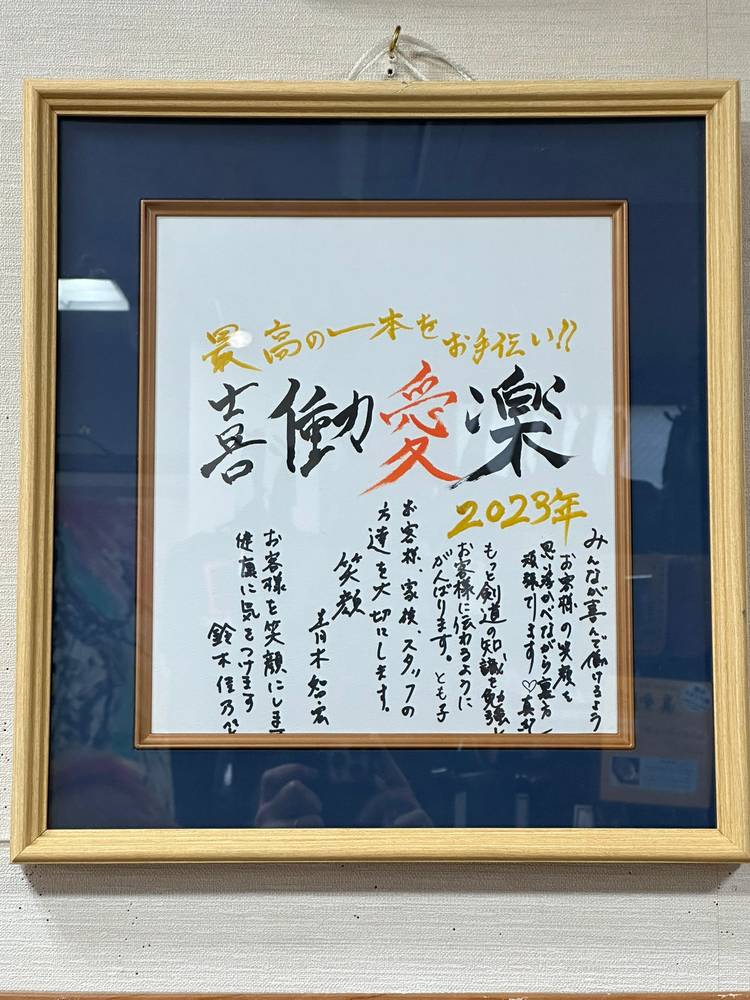 最高の一本をお手伝い!!
喜働愛楽
2023年
みんなが喜んで働けるよう
お客様の笑顔を
思い浮かべながら裏方
頑張ります♡
もっと剣道の知識を勉強し
お客様に伝わるように
がんばります。とも子
お客様、家族、スタッフの
方達を大切にします。
笑顔
青木智宏
お客様を笑顔にしま
健康に気をつけます
鈴木佳乃